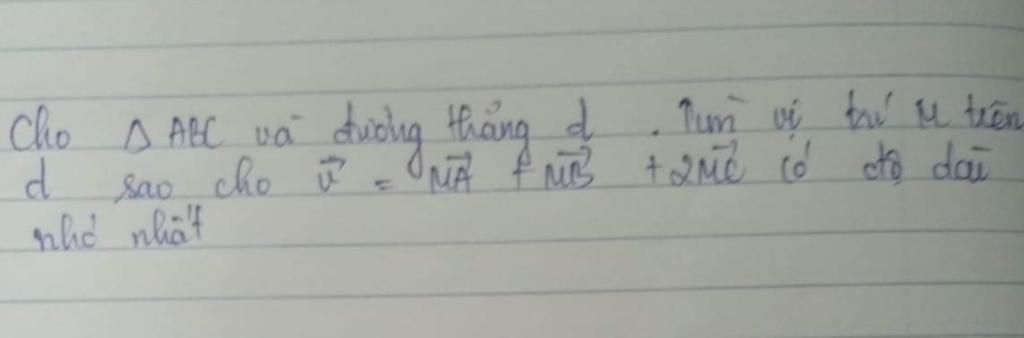 Cho Δ ABC và đường thẳng d . Tìm vị trí M trên
d sao cho v⃗ = MA⃗ + MB⃗ + 2MC⃗ có độ dài
nhỏ nhất